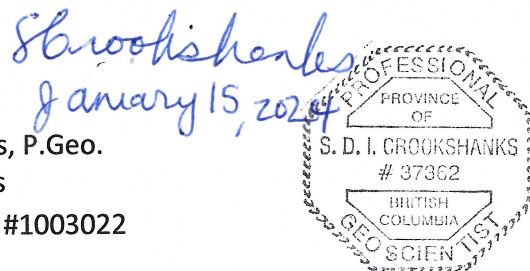 SCrookshanks
January 15, 2024
s, P.Geo.
s
#1003022
PROFESSIONAL
PROVINCE
OF
S. D. I. CROOKSHANKS
# 37362
BRITISH
COLUMBIA
GEOSCIENTIST